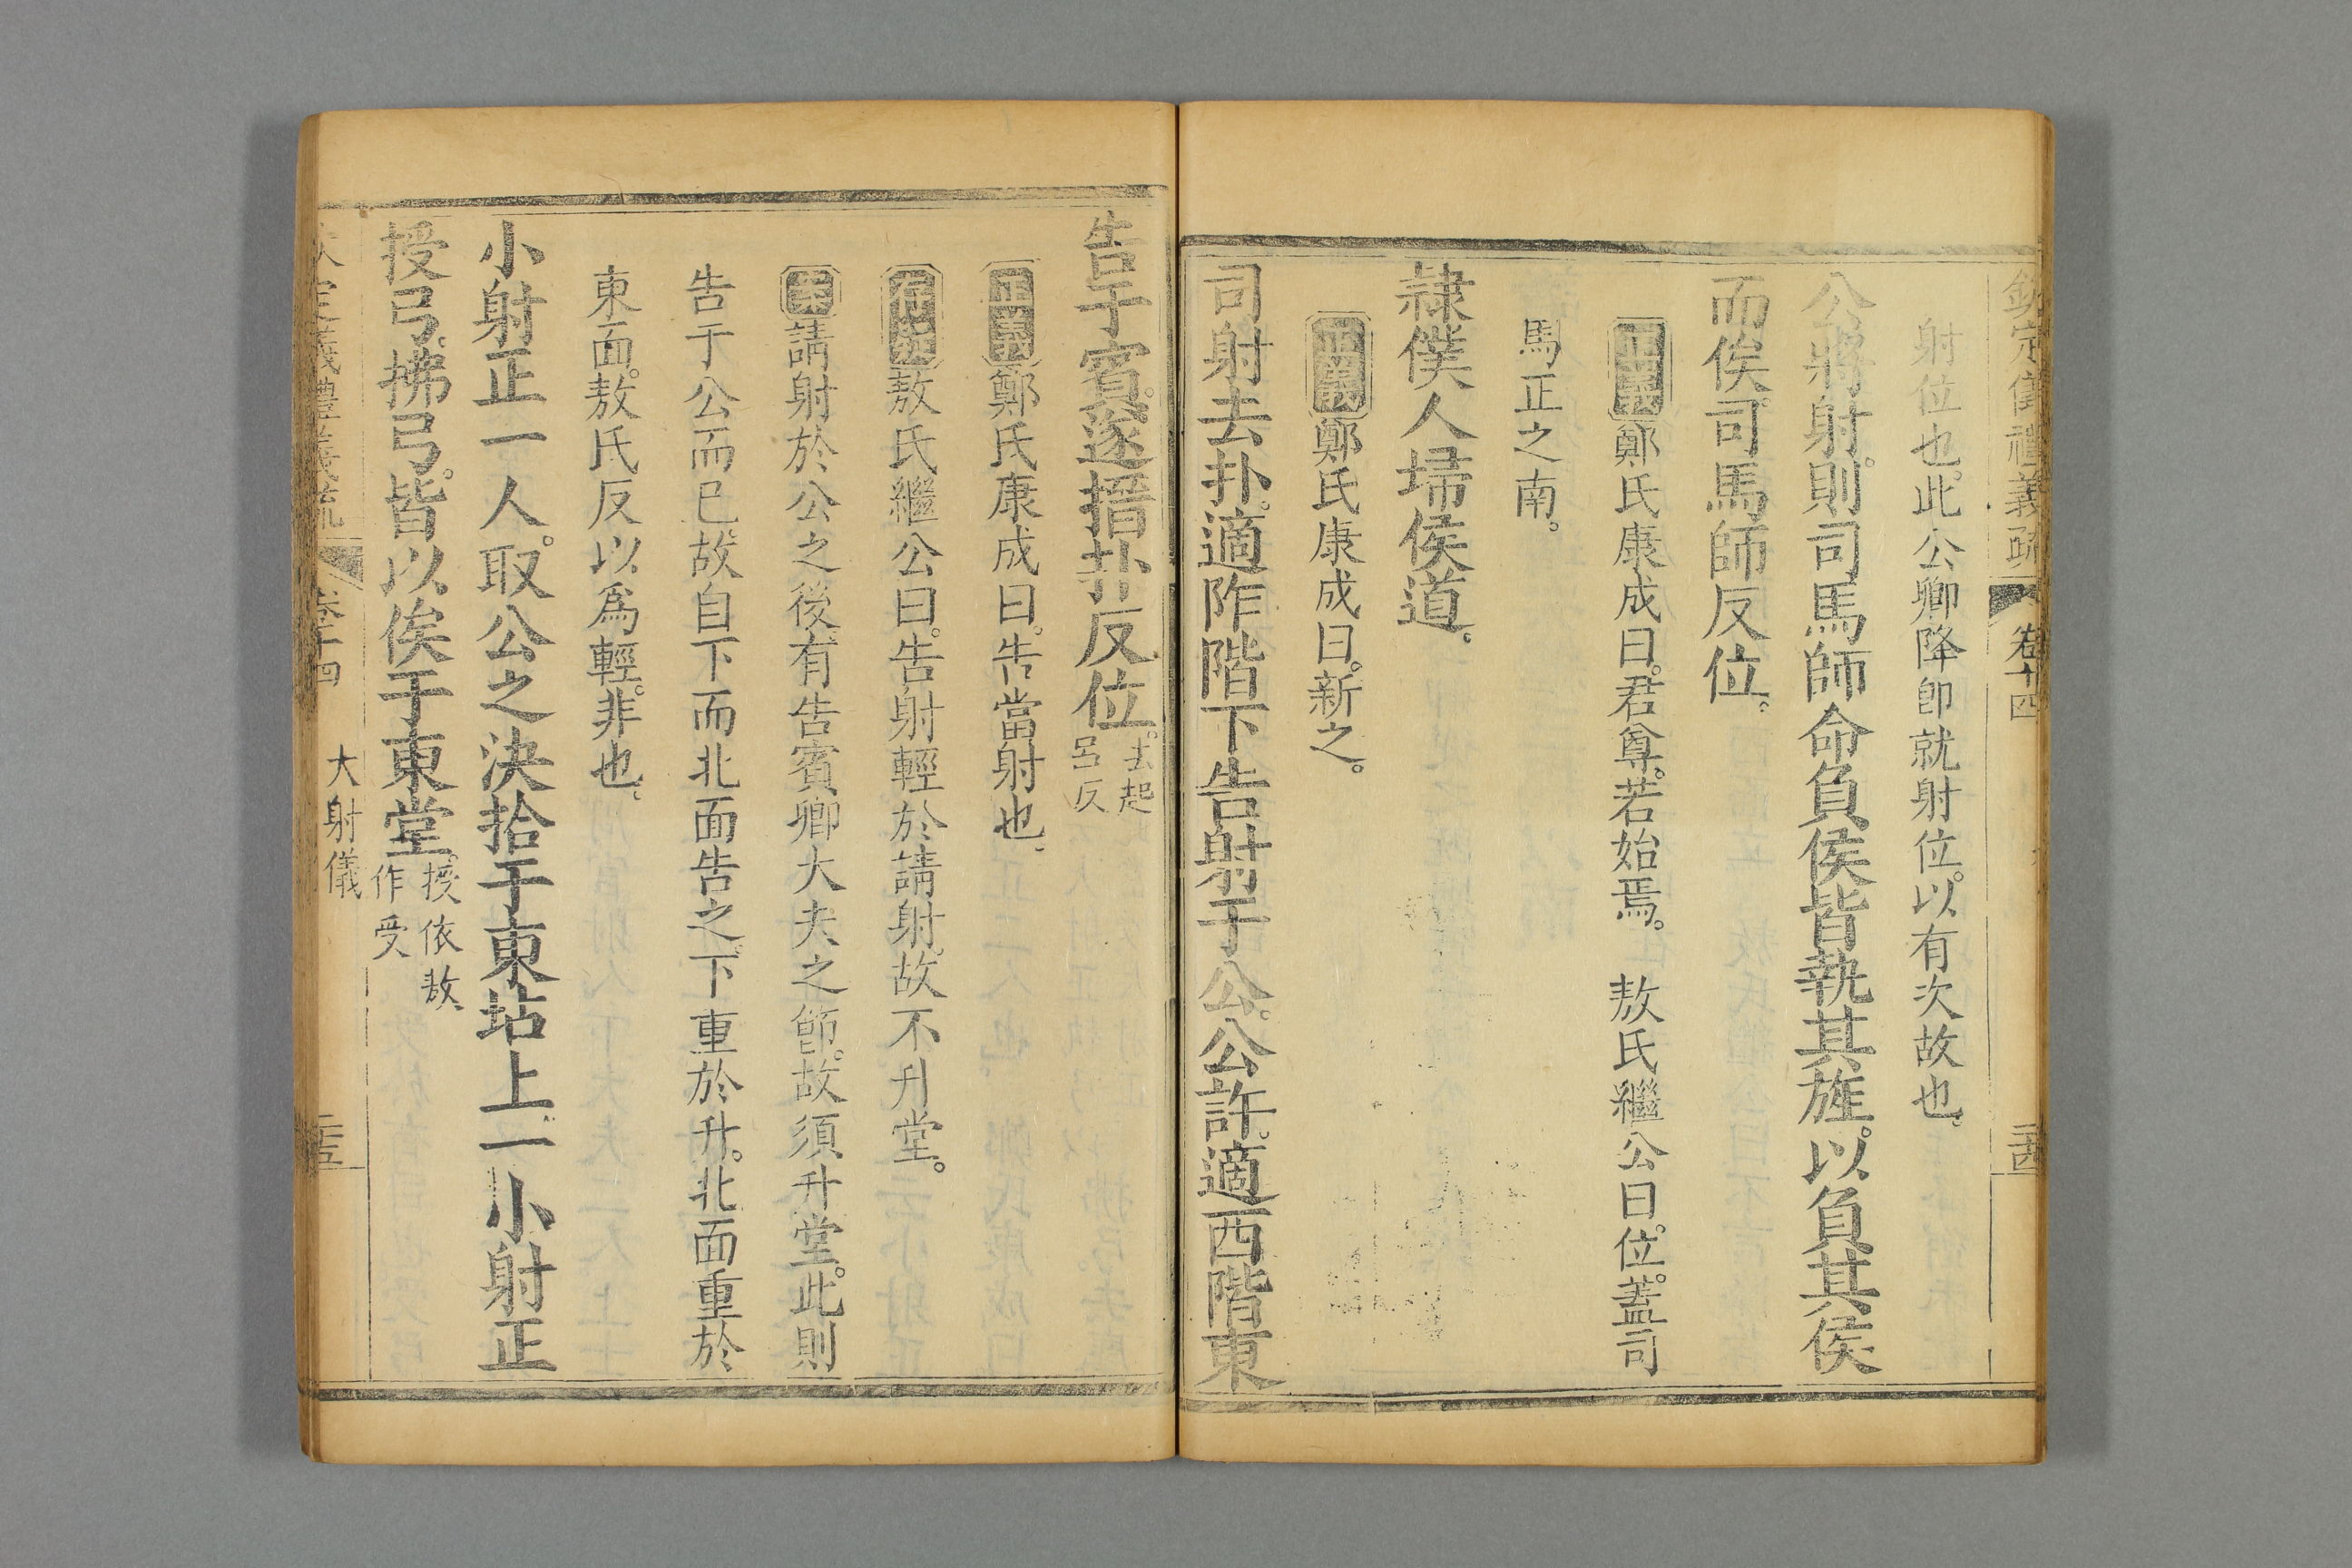 欽定儀禮義疏 卷十四 二十四
射位也。此公卿降卽就射位。以有次故也。
公將射。則司馬師命負侯皆執其旌。以負其侯
而俟。司馬師反位。
正義鄭氏康成曰。君尊。若始焉。 敖氏繼公曰。位。蓋司
馬正之南。
隸僕人埽侯道。
正義鄭氏康成曰。新之。
司射去扑。適阼階下告射于公。公許。適西階東
告于賓。遂搢扑反位。去起呂反
正義鄭氏康成曰。告當射也。
存疑敖氏繼公曰。告射輕於請射。故不升堂。
請射於公之後。有告賓卿大夫之節。故須升堂。此則
告于公而已。故自下而北面告之。下重於升。北面重於
東面。敖氏反以爲輕。非也。
小射正一人。取公之決拾于東坫上。一小射正
授弓。拂弓。皆以俟于東堂。授依敖作受
欽定儀禮義疏 卷十四 大射儀 二十五